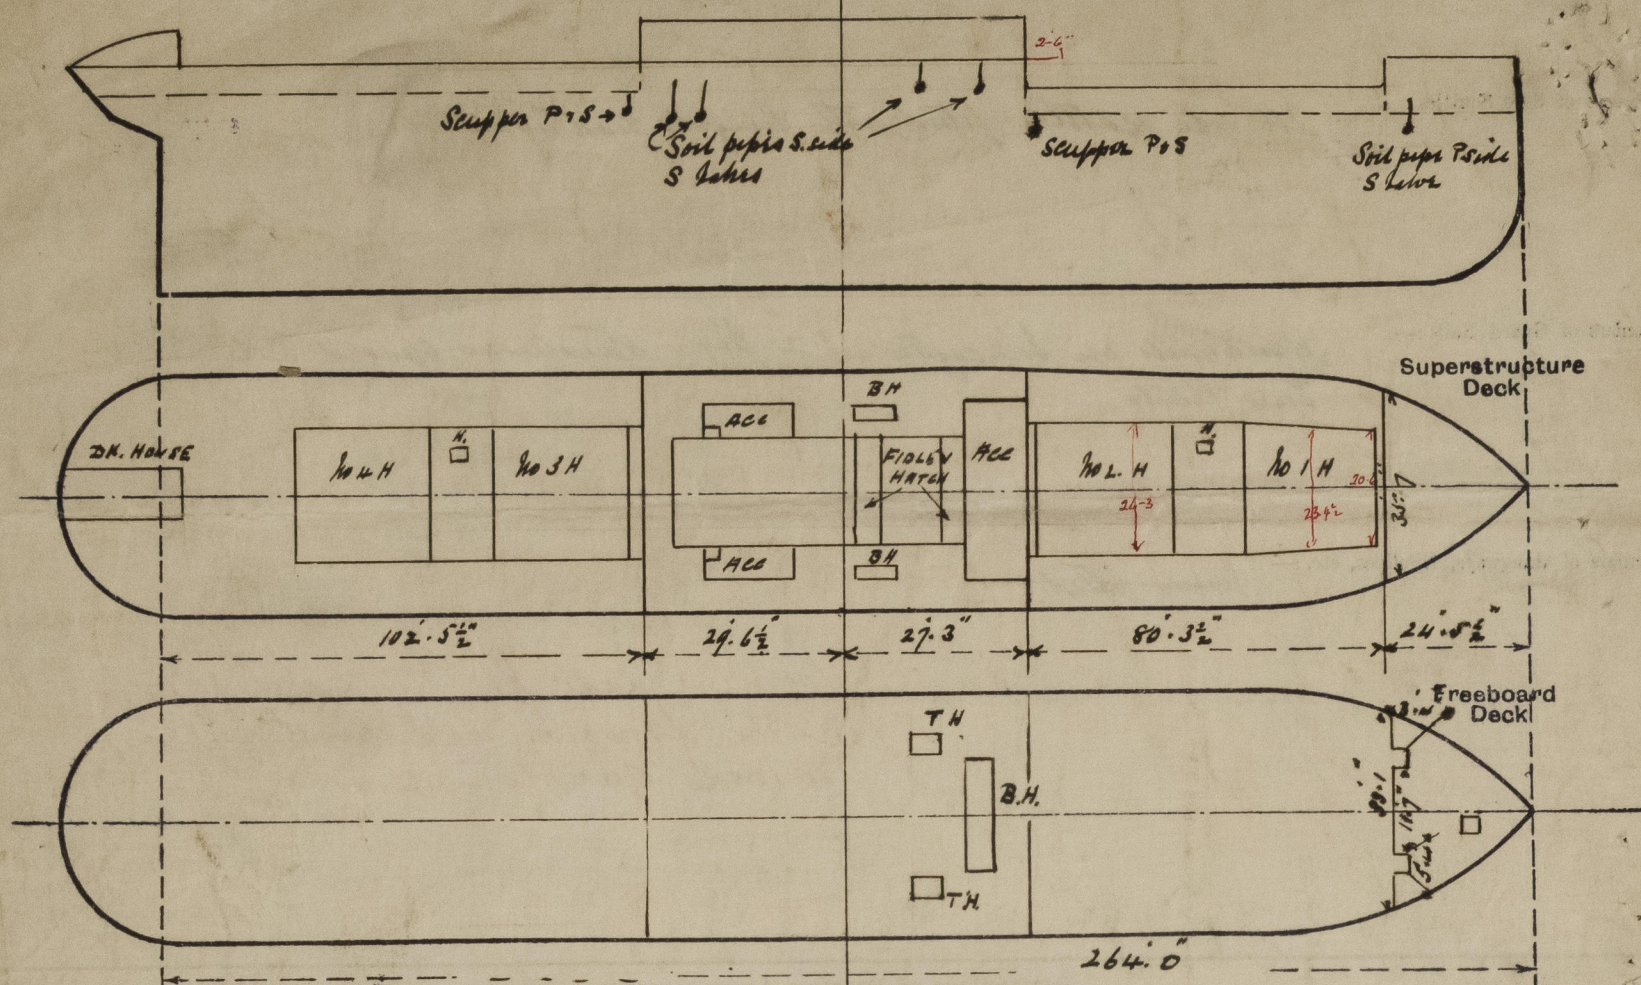 2-6"
Scupper P & S
Soil pipes S. side
S
Scupper P & S
Soil pipe P side
S
Superstructure
Deck
DK. HOUSE
No 4 H
H.
No 3 H
ACC
ACC
BH
BH
FIDLEY
HATCH
ACC
No 2. H
24-3
H.
No 1 H
23-4½
35'-7
102'. 5½"
29'. 6½"
27'. 3"
80'. 3½"
24'. 5½"
Freeboard
Deck
TH
B.H.
TH
264'. 0"